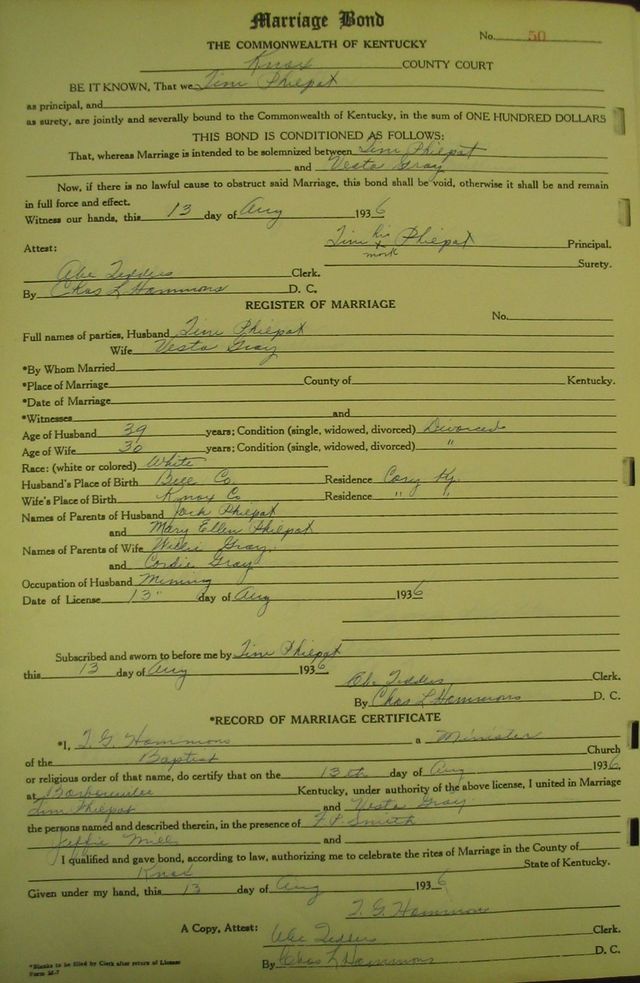 Marriage Bond
No. 50
THE COMMONWEALTH OF KENTUCKY
Knox COUNTY COURT
BE IT KNOWN, That we Tim Philpot
as principal, and
as surety, are jointly and severally bound to the Commonwealth of Kentucky, in the sum of ONE HUNDRED DOLLARS
THIS BOND IS CONDITIONED AS FOLLOWS:
That, whereas Marriage is intended to be solemnized between Tim Philpot
and Vesta Gray
Now, if there is no lawful cause to obstruct said Marriage, this bond shall be void, otherwise it shall be and remain
in full force and effect.
Witness our hands, this 13 day of Aug 1936
Tim his x mark Philpot Principal.
Attest: Surety.
Abe Tedders Clerk.
By Chas L Hammons D. C.
REGISTER OF MARRIAGE
No.
Full names of parties, Husband Tim Philpot
Wife Vesta Gray
*By Whom Married
*Place of Marriage County of Kentucky.
*Date of Marriage
*Witnesses and
Age of Husband 39 years; Condition (single, widowed, divorced) Divorced
Age of Wife 30 years; Condition (single, widowed, divorced) "
Race: (white or colored) White
Husband's Place of Birth Bell Co. Residence Cary Ky.
Wife's Place of Birth Knox Co Residence " "
Names of Parents of Husband Jack Philpot
and Mary Ellen Philpot
Names of Parents of Wife Willie Gray
and Cordie Gray
Occupation of Husband Mining
Date of License 13" day of Aug 1936
Subscribed and sworn to before me by Tim Philpot
this 13 day of Aug 1936
Abe Tedders Clerk.
By Chas L Hammons D. C.
*RECORD OF MARRIAGE CERTIFICATE
*I, T. G. Hammons a Minister
of the Baptist Church
or religious order of that name, do certify that on the 13th day of Aug 1936,
at Barbourville Kentucky, under authority of the above license, I united in Marriage
Tim Philpot and Vesta Gray
the persons named and described therein, in the presence of F. P. Smith
Mills and
I qualified and gave bond, according to law, authorizing me to celebrate the rites of Marriage in the County of
Knox State of Kentucky.
Given under my hand, this 13 day of Aug 1936
T. G. Hammons
A Copy, Attest: Abe Tedders Clerk.
By Chas L Hammons D. C.
*Blanks to be filled by Clerk after return of License
Form M-7